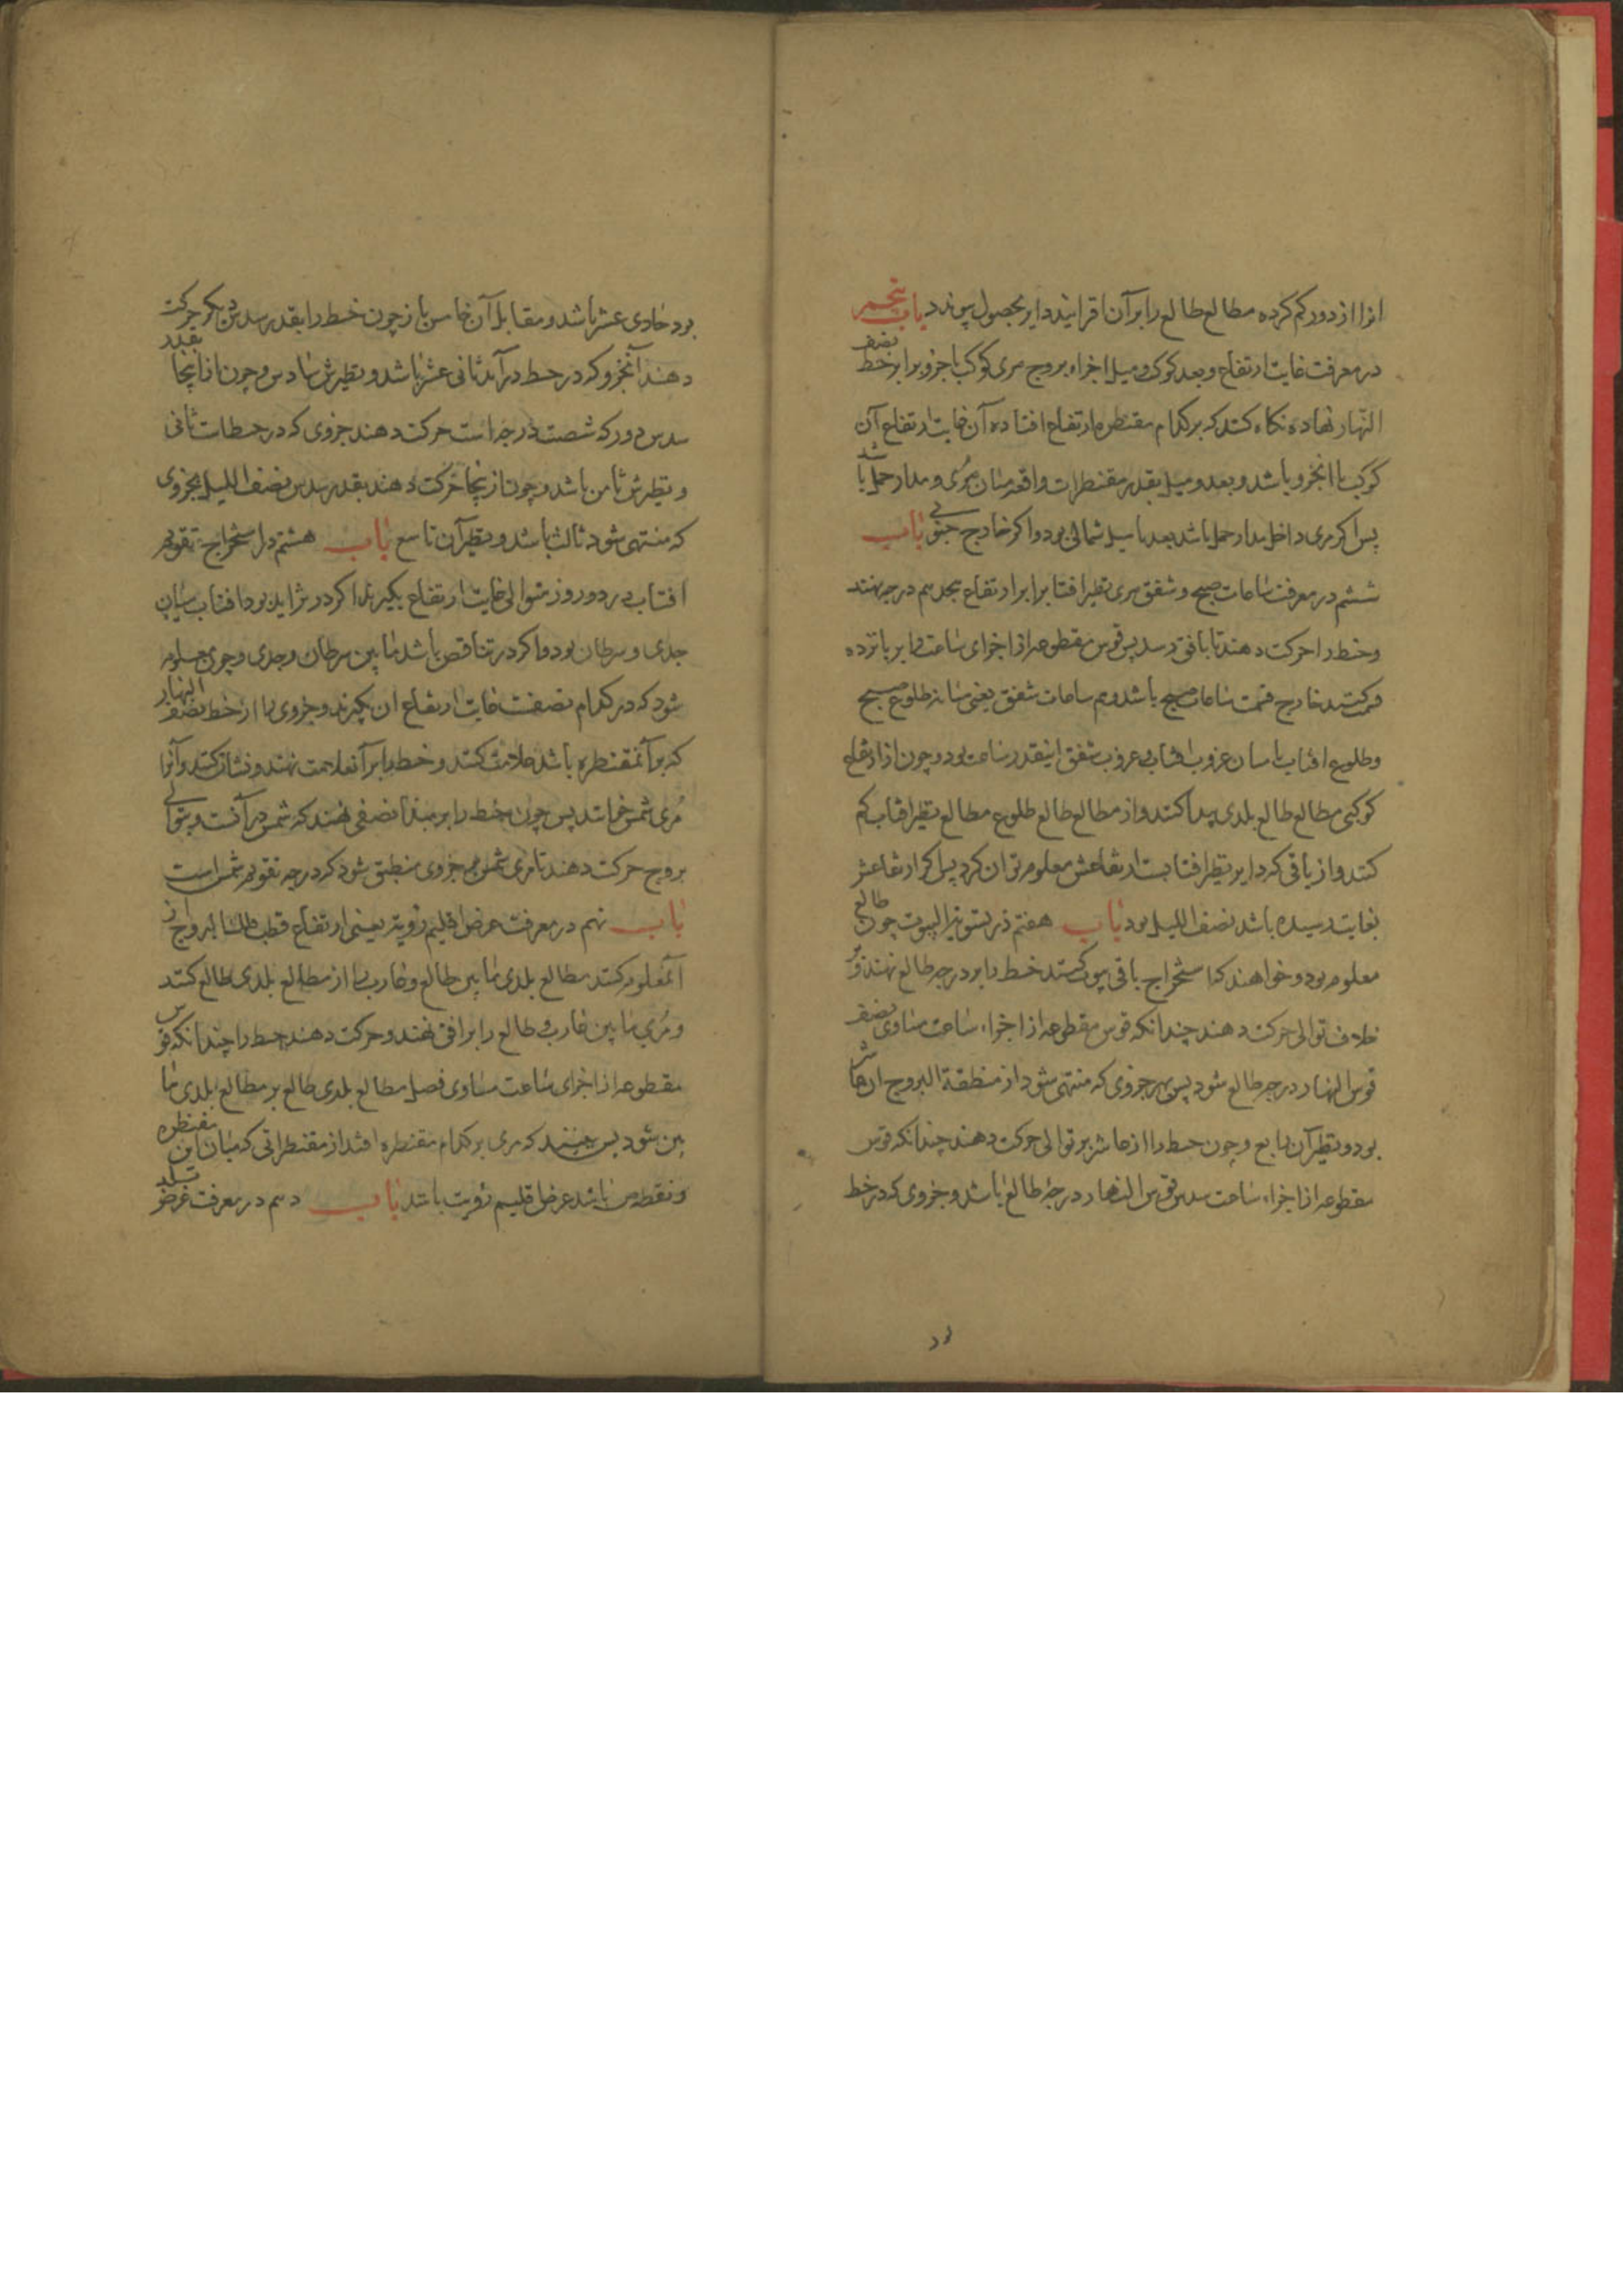 انرا از دور کم کرده مطالع طالع را بر آن افزایند دایر بحصول پیوندد باب پنجم
در معرفت غایت ارتفاع و بعد کوکب و میل اجزاء بروج مری کوکب یا جزو برابر خط نصف
النهار نهاده نکاه کنند که بر کدام مقنطره ارتفاع افتاده آن غایت ارتفاع آن
کوکب یا انجزو باشد و بعد و میل بقدر مقنطرات واقعه میان مری و مدار حمل باشد
پس اکر مری داخل مدار حمل باشد بعد یا میل شمالی بود و اکر خارج جنوبی باب
ششم در معرفت ساعات صبح و شفق مری نظیر افتاب برابر ارتفاع هجدهم درجه نهند
و خط را حرکت دهند تا بافق رسد پس قوس مقطوعه از اجزای ساعت را بر پانزده
قسمت کنند خارج قسمت ساعات صبح باشد و هم ساعات شفق یعنی میانه طلوع صبح
و طلوع افتاب یا میان غروب افتاب و غروب شفق اینقدر ساعت بود و چون از ارتفاع
کوکبی مطالع طالع بلدی پیدا کنند و از مطالع طالع طلوع مطالع نظیر افتاب کم
کنند و از باقی که دایر نظیر افتابست ارتفاعش معلوم توان کرد پس اکر ارتفاعش
بغایت رسیده باشد نصف اللیل بود باب هفتم در تسویة البیوت چون طالع
معلوم بود و خواهند که استخراج باقی بیوت کنند خط را بر درجه طالع نهند و بر
خلاف توالی حرکت دهند چندانکه قوس مقطوعه از اجزاء ساعت مساوی نصف
قوس النهار درجه طالع شود پس بهر جزوی که منتهی شود از منطقة البروج ان عاشر
بود و نظیر آن رابع و چون خط را از عاشر بر توالی حرکت دهند چندانکه قوس
مقطوعه از اجزاء ساعت سدس قوس النهار درجۀ طالع باشد و جزوی که در خط
بود حادی عشر باشد و مقابل آن خامس باز چون خط را بقدر سدس دیکر حرکت
دهند آنجزو که در خط درآید ثانی عشر باشد و نظیرش سادس و چون از اینجا بقدر
سدس دور که شصت درجه است حرکت دهند جزوی که در خطات ثانی
و نظیرش ثامن باشد و چون ازینجا حرکت دهند بقدر سدس نصف اللیل بجزوی
که منتهی شود ثالث باشد و نظیر آن تاسع باب هشتم در استخراج تقویم
افتاب در دو روز متوالی غایت ارتفاع بکیرند اکر در تزاید بود افتاب میان
جدی و سرطان بود و اکر در تناقص باشد مابین سرطان و جدی و چون معلوم
شود که در کدام نصفست غایت ارتفاع ان بکیرند و جزوی را از خط نصف النهار
که بر آنمقنطره باشد علامت کنند و خط را بر آنعلامت نهند و نشان کنند و آنرا
مری شمس خوانند پس چون خط را بر مبدأ نصفی نهند که شمس در آنست و بتوالی
بروج حرکت دهند تا مری شمس بر جزوی منطبق شود که درجه تقویم شمس است
باب نهم در معرفت عرض اقلیم رویت یعنی ارتفاع قطب فلک البروج از
آنمعلوم کنند مطالع بلدی مابین طالع و غارب را از مطالع بلدی طالع کنند
و مری مابین غارب و طالع را بر افق نهند و حرکت دهند خط را چندانکه قوس
مقطوعه از اجزای ساعت مساوی فصل مطالع بلدی طالع بر مطالع بلدی ما
بین شود پس ببینند که مری بر کدام مقنطره افتد از مقنطراتی که میان این مقنطره
و نقطه س باشد عرض اقلیم رویت باشد باب دهم در معرفت عرض بلد